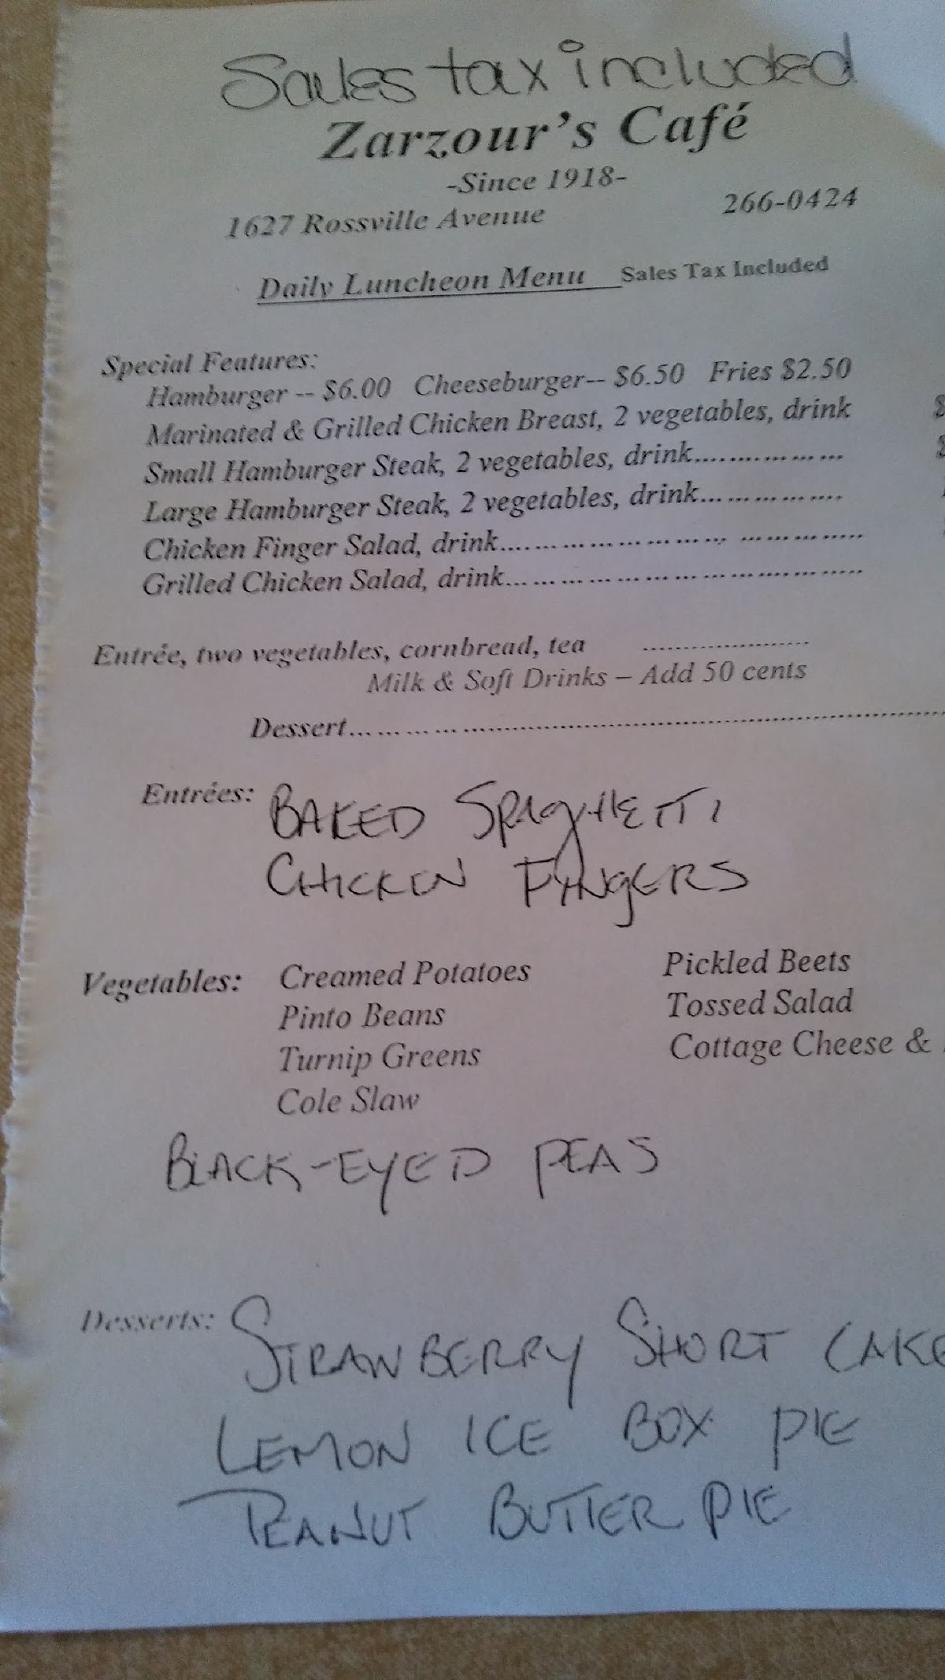 Sales tax included
Zarzour's Café
-Since 1918-
1627 Rossville Avenue 266-0424
Daily Luncheon Menu Sales Tax Included
Special Features:
Hamburger -- $6.00 Cheeseburger-- $6.50 Fries $2.50
Marinated & Grilled Chicken Breast, 2 vegetables, drink $
Small Hamburger Steak, 2 vegetables, drink................. $
Large Hamburger Steak, 2 vegetables, drink................
Chicken Finger Salad, drink.......................................
Grilled Chicken Salad, drink.......................................
Entrée, two vegetables, cornbread, tea .......................
Milk & Soft Drinks – Add 50 cents
Dessert............................................................
Entrées: BAKED SPAGHETTI
CHICKEN FINGERS
Vegetables: Creamed Potatoes Pickled Beets
Pinto Beans Tossed Salad
Turnip Greens Cottage Cheese &
Cole Slaw
BLACK-EYED PEAS
Desserts: STRAWBERRY SHORT CAKE
LEMON ICE BOX PIE
PEANUT BUTTER PIE